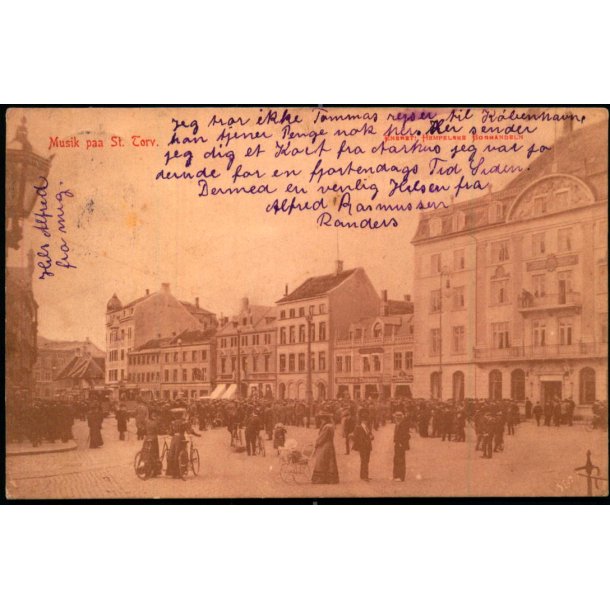 Jeg tror ikke Tommas rejser til København
han tjener Penge nok her. Her sender
jeg dig et Kort fra Aarhus jeg var jo
derude for en fjortendags Tid Siden.
Dermed en venlig Hilsen fra
Alfred Rasmussen
Randers
Musik paa St. Torv.
Eneret: Hempelske Boghandeln
Hils Alfred
fra mig.